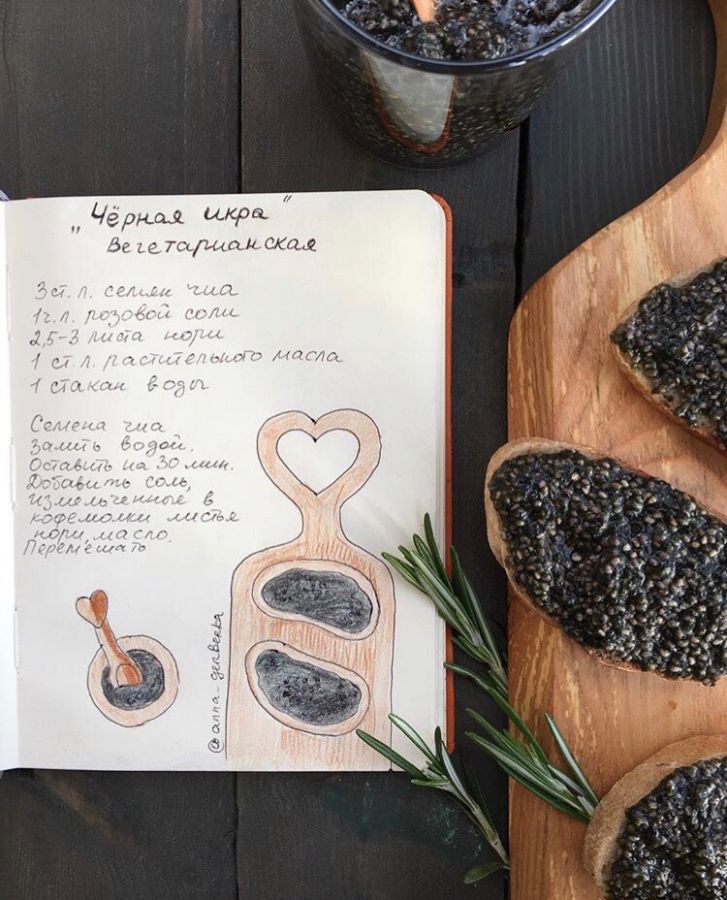 "Чёрная икра"
Вегетарианская
3 ст. л. семян чиа
1 ч. л. розовой соли
2,5-3 листа нори
1 ст. л. растительного масла
1 стакан воды
Семена чиа
залить водой.
Оставить на 30 мин.
Добавить соль,
измельченные в
кофемолки листья
нори, масло.
Перемешать
@anna_gerberka